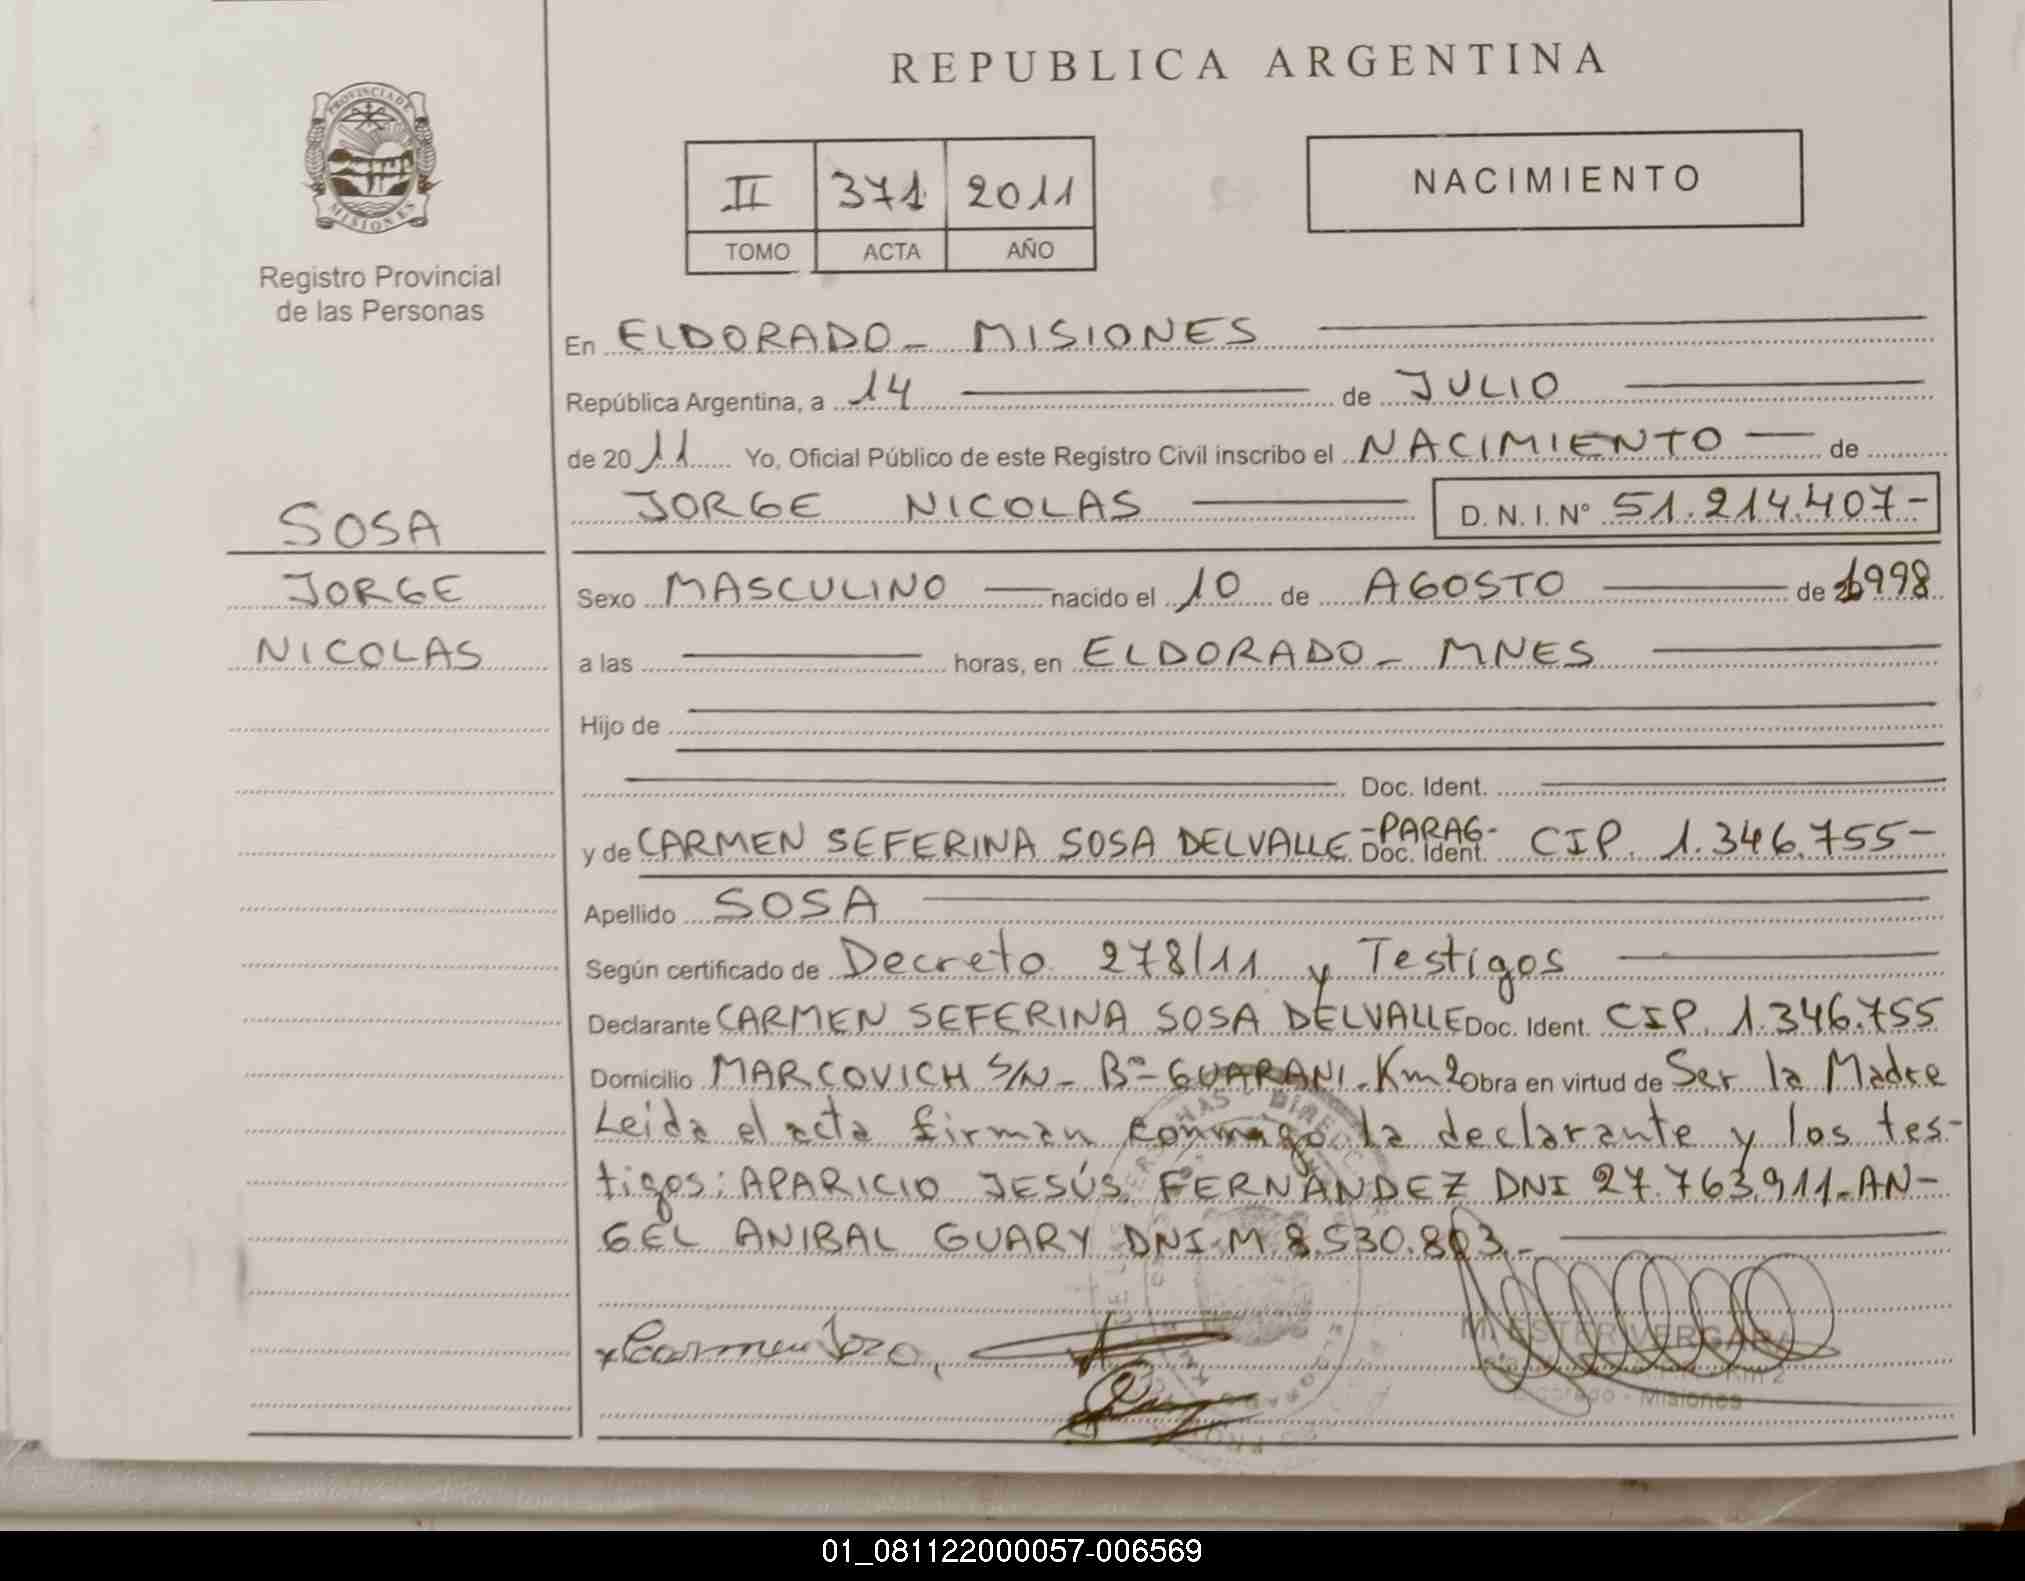 REPUBLICA ARGENTINA
PROVINCIA DE
MISIONES
Registro Provincial
de las Personas
II 371 2011
TOMO ACTA AÑO
NACIMIENTO
En ELDORADO - MISIONES
República Argentina, a 14 de JULIO
de 2011 Yo, Oficial Público de este Registro Civil inscribo el NACIMIENTO de
JORGE NICOLAS D. N. I. Nº 51.214.407-
SOSA
JORGE
NICOLAS
Sexo MASCULINO nacido el 10 de AGOSTO de 1998
a las horas, en ELDORADO - MNES
Hijo de
Doc. Ident.
y de CARMEN SEFERINA SOSA DELVALLE -PARAG- Doc. Ident. CIP. 1.346.755-
Apellido SOSA
Según certificado de Decreto 278/11 y Testigos
Declarante CARMEN SEFERINA SOSA DELVALLE Doc. Ident. CIP. 1.346.755
Domicilio MARCOVICH S/N - Bº- GUARANI - Km 2 Obra en virtud de Ser la Madre
Leida el acta firman conmigo la declarante y los tes-
tigos: APARICIO JESÚS FERNANDEZ DNI 27.763.911 - AN-
GEL ANIBAL GUARY DNI-M 8.530.803.-
Carmen Sosa
M. ESTER VERGARA
Km 2
Eldorado - Misiones
01_081122000057-006569